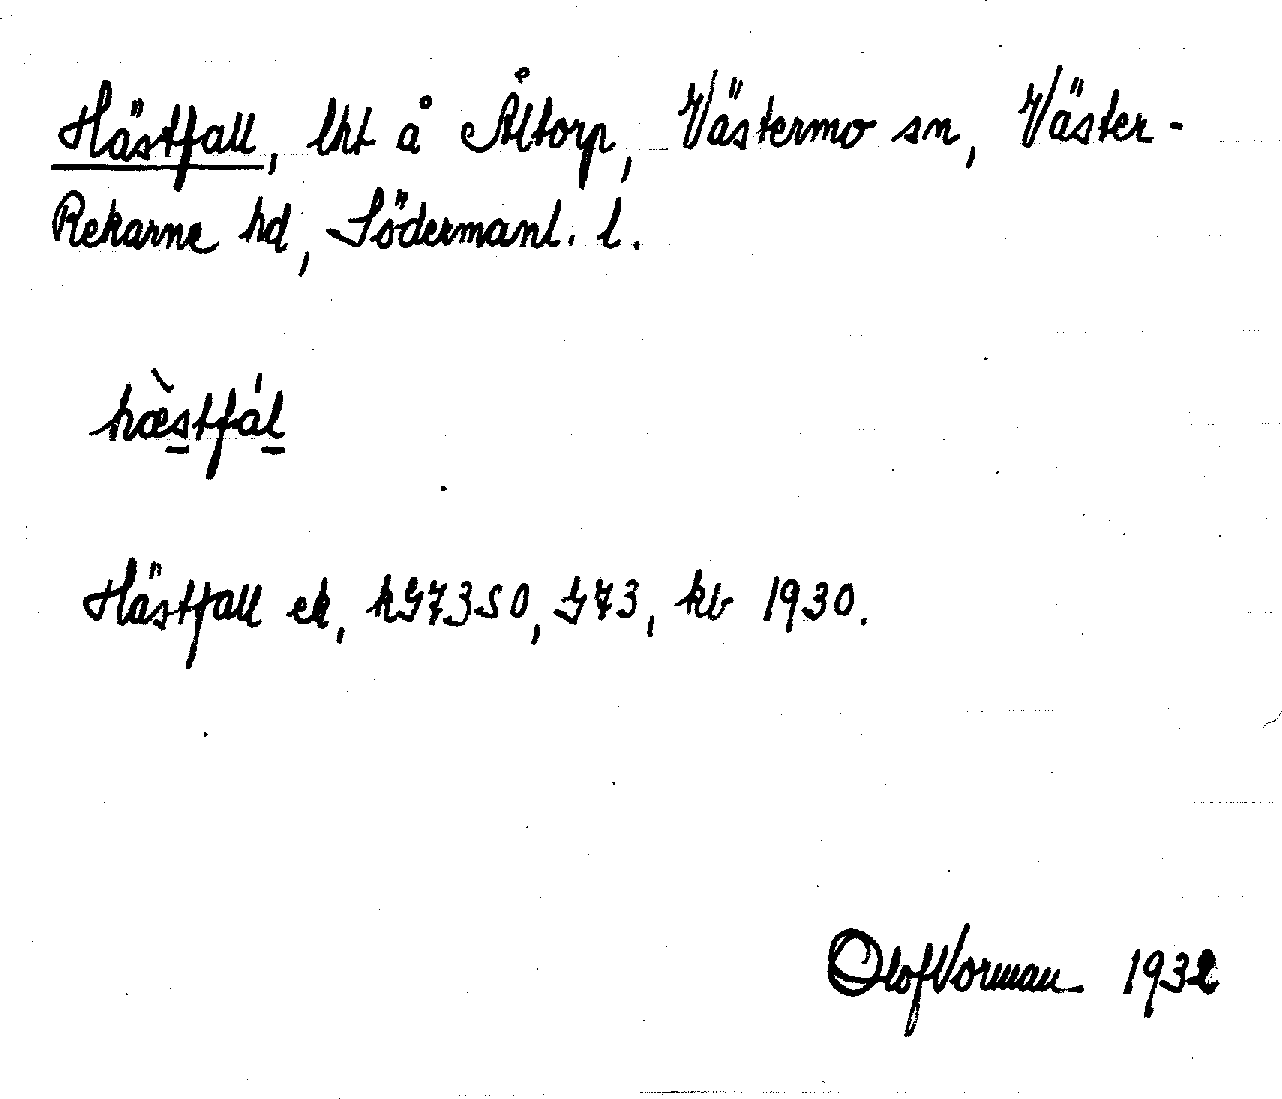 Hästfall, lht å Åltorp, Västermo sn, Väster-
Rekarne hd, Södermanl. l.
hæ̀stfál
Hästfall ek, hG73S0, G73, kb 1930.
Olof Vorman 1932